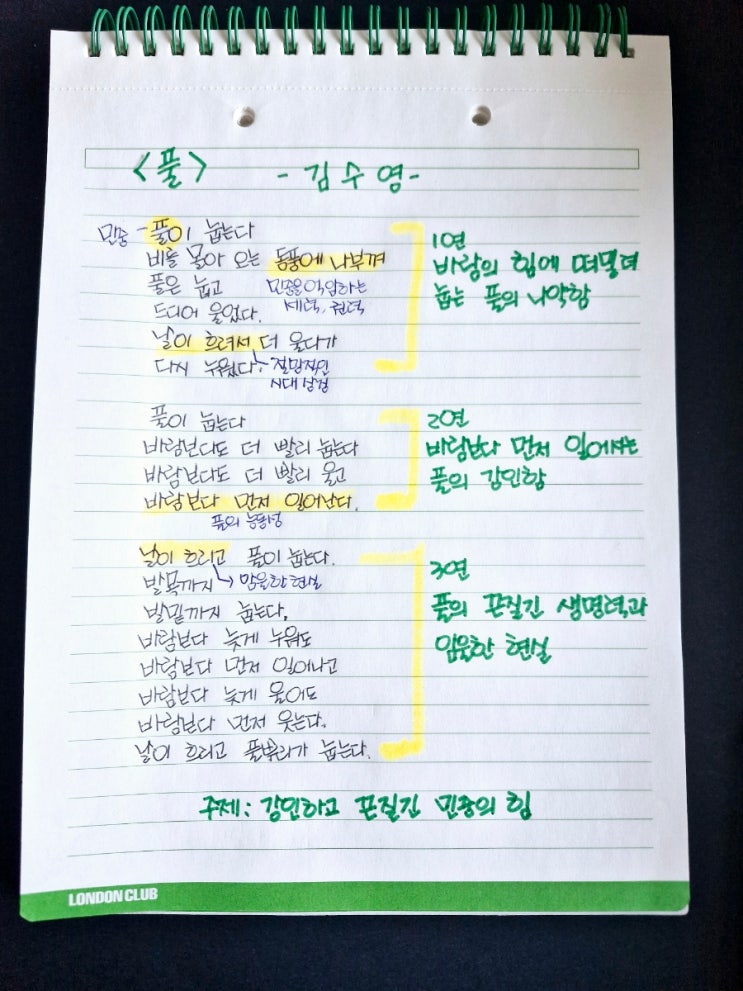 <풀> -김수영-
민중 - 풀이 눕는다
비를 몰아 오는 동풍에 나부껴
풀은 눕고
민중을 억압하는
세력, 권력
드디어 울었다.
날이 흐려서 더 울다가
다시 누웠다.
절망적인
시대 상황
1연
바람의 힘에 떠밀려
눕는 풀의 나약함
풀이 눕는다
바람보다도 더 빨리 눕는다
바람보다도 더 빨리 울고
바람보다 먼저 일어난다.
풀의 능동성
2연
바람보다 먼저 일어서는
풀의 강인함
날이 흐리고 풀이 눕는다.
발목까지 → 암울한 현실
발밑까지 눕는다.
바람보다 늦게 누워도
바람보다 먼저 일어나고
바람보다 늦게 울어도
바람보다 먼저 웃는다.
날이 흐리고 풀뿌리가 눕는다.
3연
풀의 끈질긴 생명력과
암울한 현실
주제: 강인하고 끈질긴 민중의 힘
LONDON CLUB